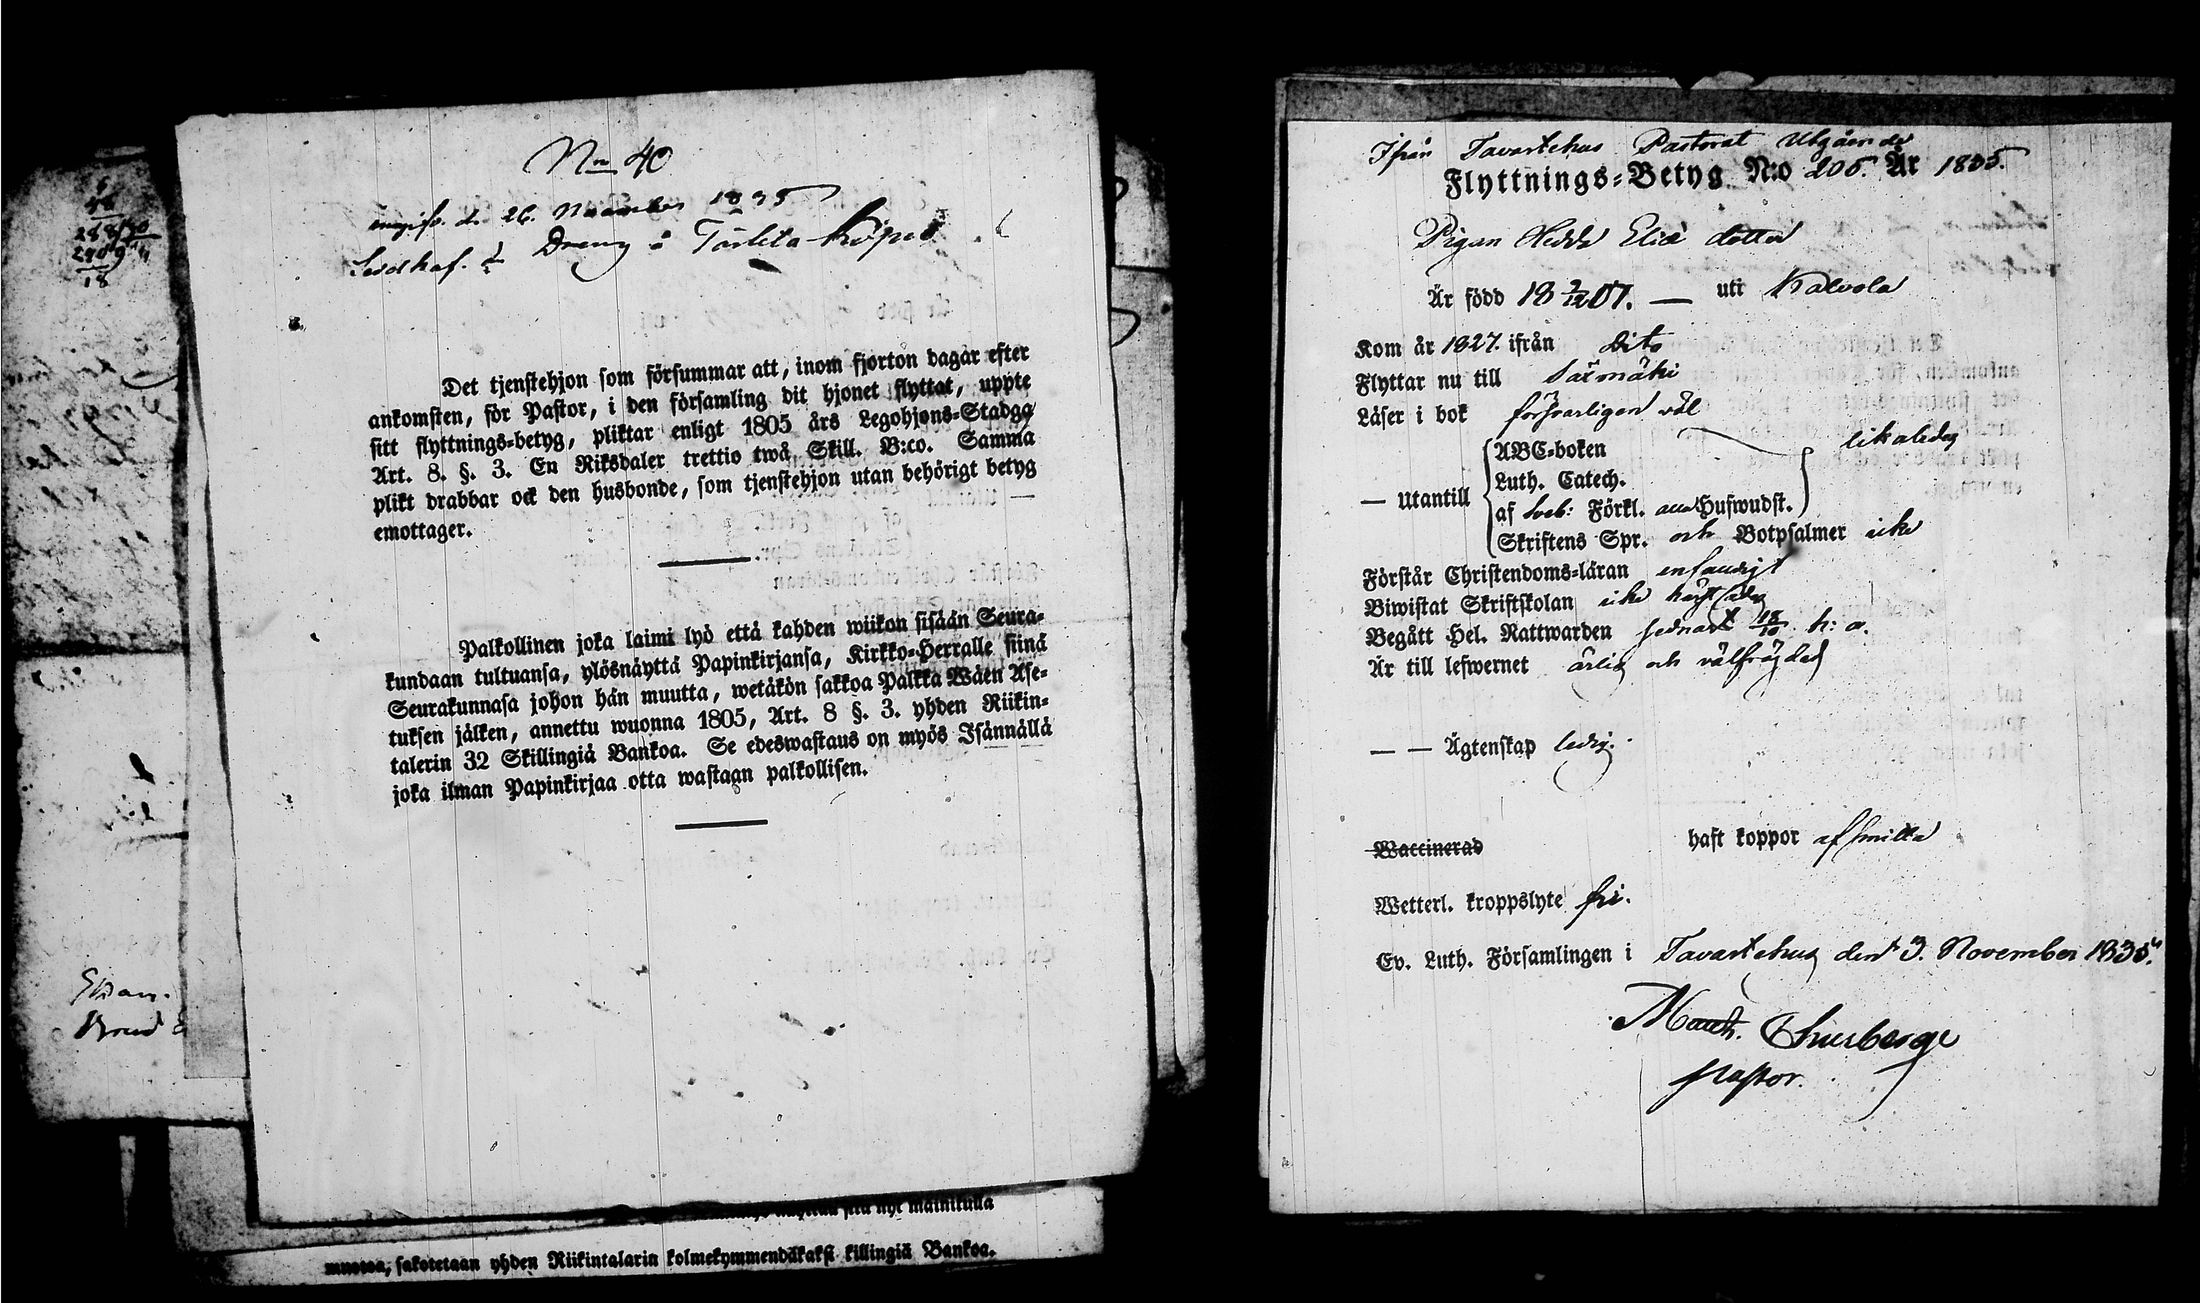 Nr 40
d. 26. November 1835
Dreng å
Det tjenstehjon som försummar att, inom fjorton dagar efter
ankomsten, för Pastor, i den församling dit hjonet flyttat, uppte
sitt flyttnings-betyg, pliktar enligt 1805 års Legohjons-Stadga
Art. 8. §. 3. En Riksdaler trettio twå Skill. B:co. Samma
plikt drabbar ock den husbonde, som tjenstehjon utan behörigt betyg
emottager.
Palkollinen joka laimi lyö että kahden wiikon sisään Seura-
kundaan tultuansa, ylösnäyttä Papinkirjansa, Kirkko-Herralle siinä
Seurakunnasa johon hän muutta, wetäkön sakkoa Palkka Wäen Ase-
tuksen jälken, annettu wuonna 1805, Art. 8 §. 3. yhden Riikin-
talerin 32 Skillingiä Bankoa. Se edeswastaus on myös Isännällä
joka ilman Papinkirjaa otta wastaan palkollisen.
sakotetaan yhden Riikintalarin kolmekymmendäkaksi killingiä Bankoa.
Ifrån Tavastehus Pastorat Utgående
Flyttnings-Betyg N:o 205. År 1835.
Pigan Hedda Eliæ dotter
Är född 18 2/12 07. — uti Kalvola
Kom år 1827. ifrån dito
Flyttar nu till Säxmäki
Läser i bok försvarligen väl
— Utantill
ABC-boken
Luth. Catech.
af Sveb: Förkl. Hufwudst.
likaledes
Skriftens Spr. och Botpsalmer icke
Förstår Christendoms-läran enfaldigt
Biwistat Skriftskolan icke härstädes
Begått Hel. Nattwarden sednast 18/10 h: a.
Är till lefwernet ärlig och välfrägdad
— — Ägtenskap ledig.
Waccinerad haft koppor af smitta
Wetterl. kroppslyte fri.
Ev. Luth. Församlingen i Tavastehus den 3. November 1835.
Thusberg
Pastor.